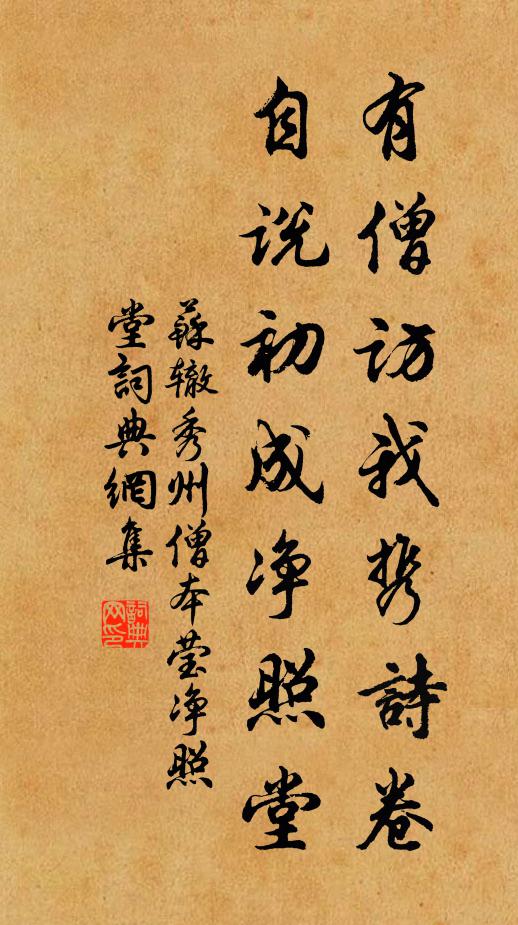 有僧訪我携詩卷
自说初成净照堂
蘇辙秀州僧本莹净照
堂詞典網集
詞典网印